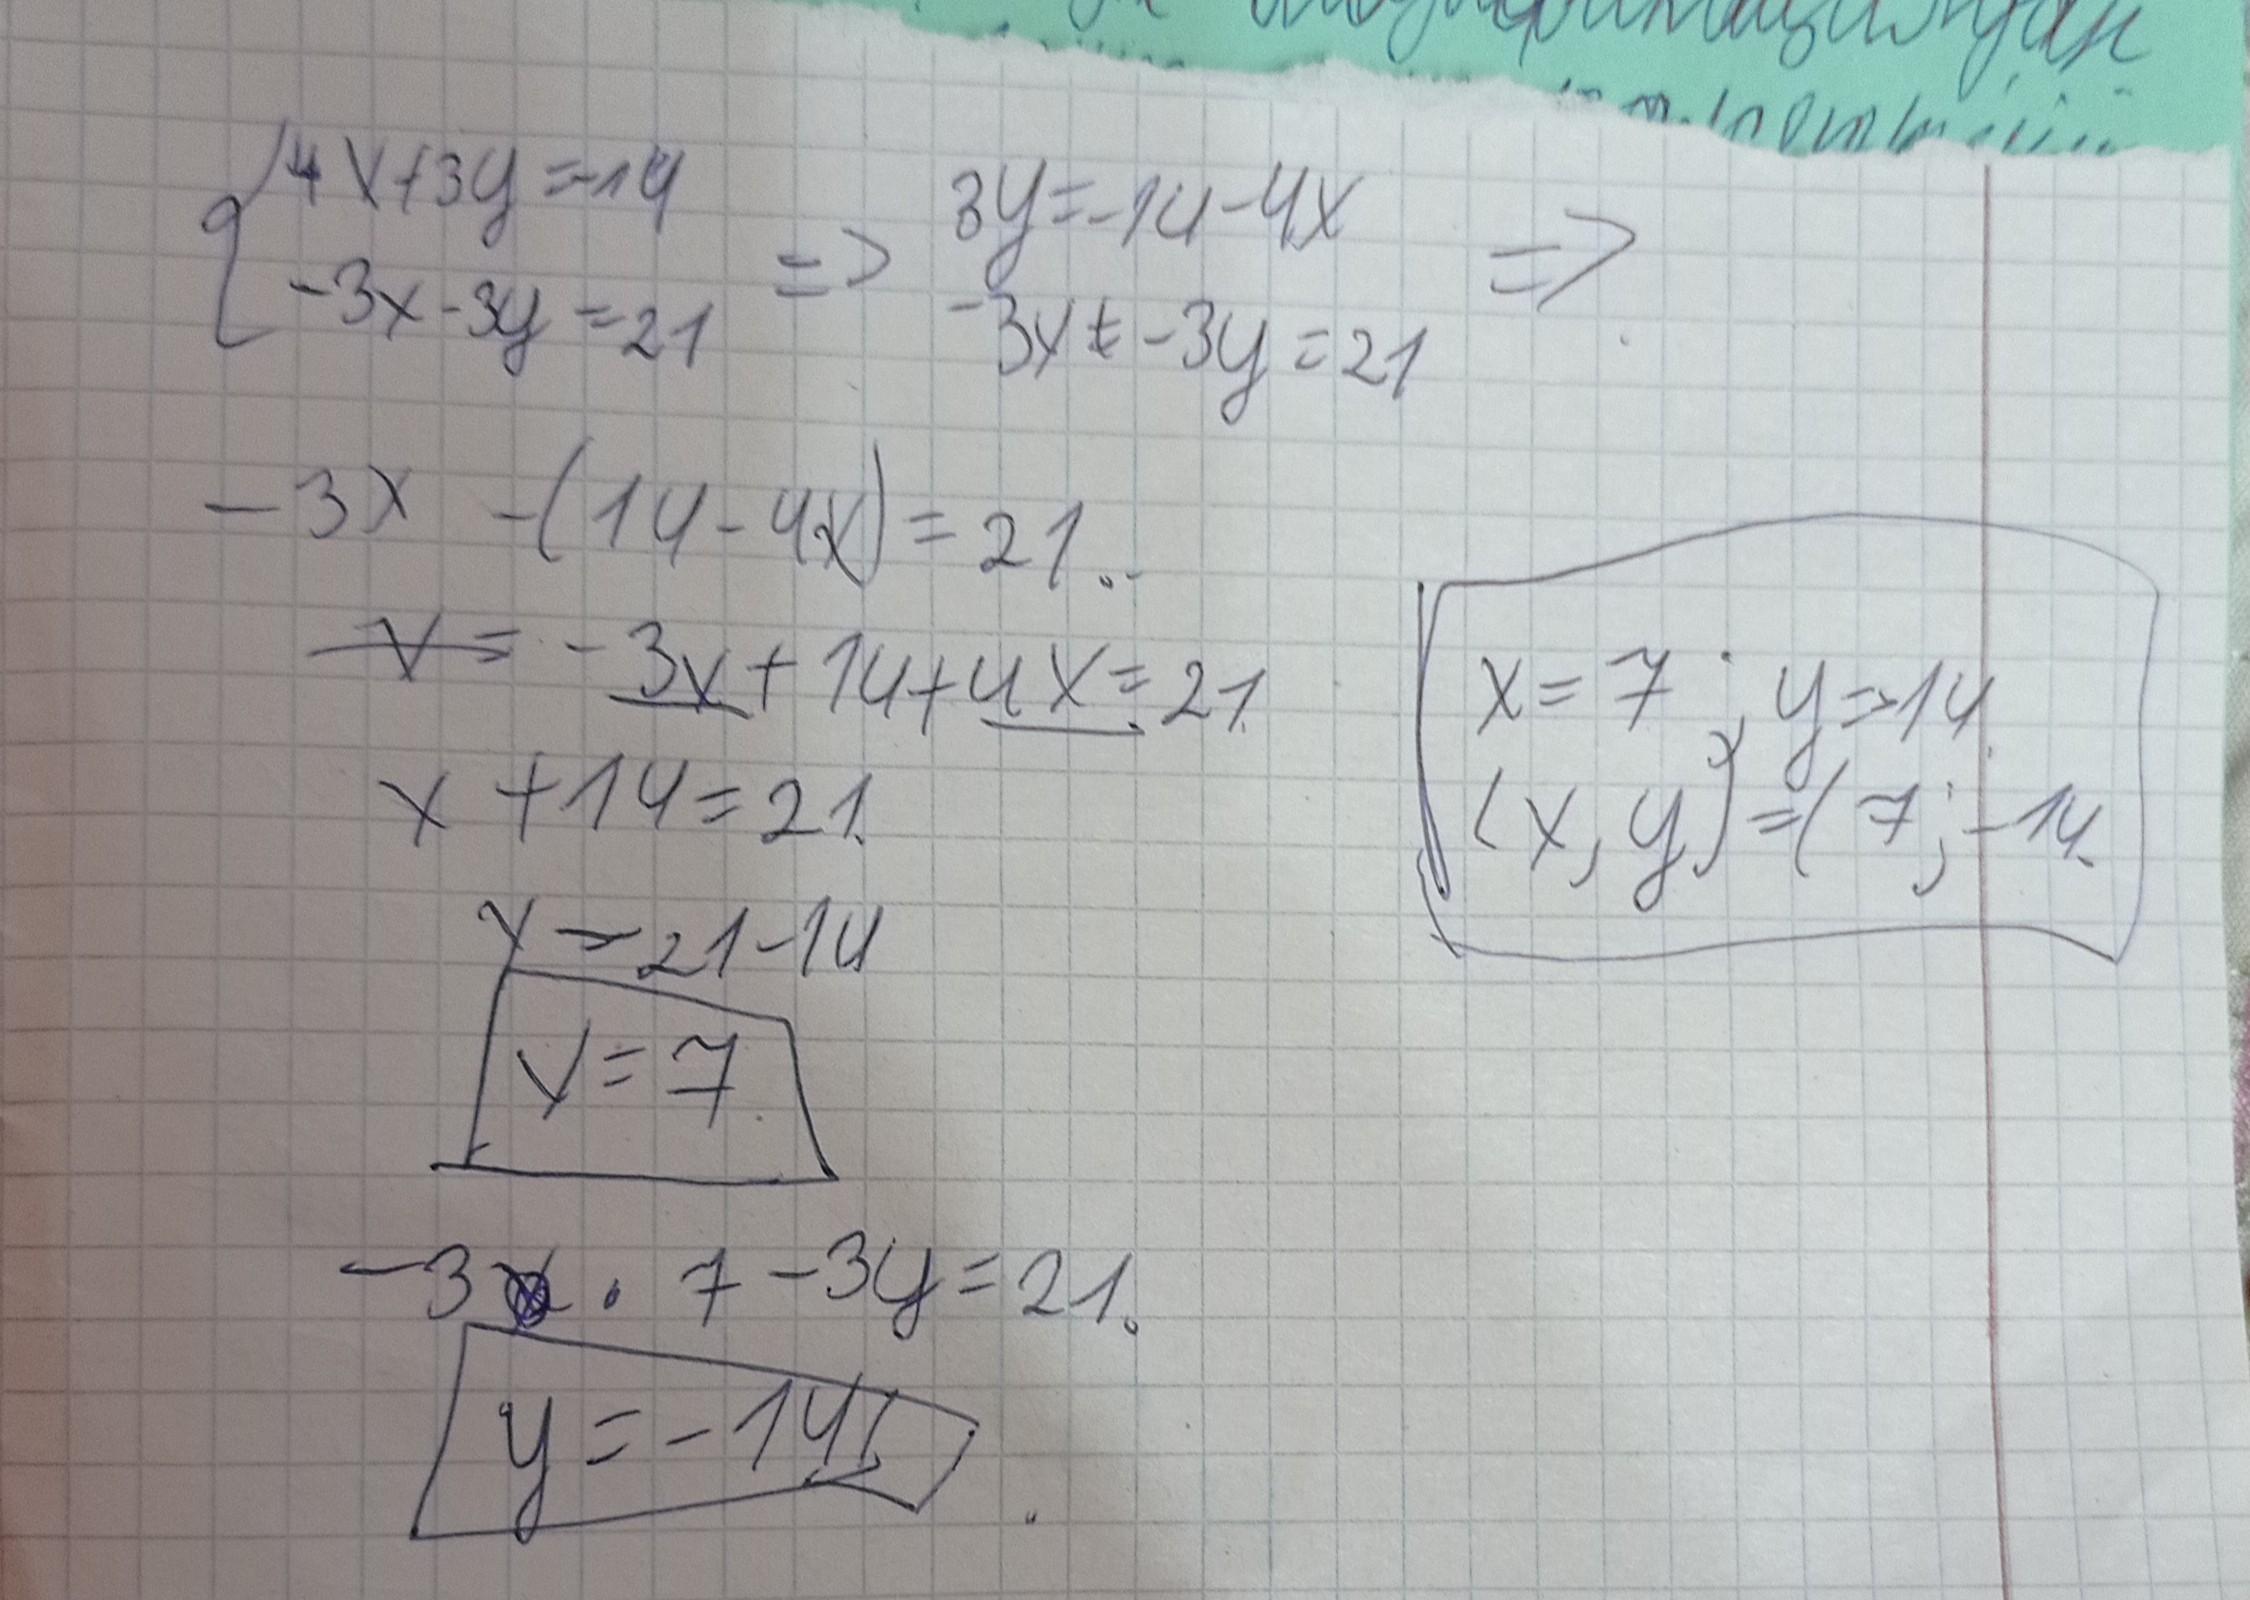 4x+3y=-14
-3x-3y=21
=>
3y=-14-4x
-3x = -3y=21
=>
-3x -(14-4x)=21.
x= -3x+14+4x=21.
x+14=21.
x=21-14
x=7.
-3 · 7-3y=21.
y=-14
x=7; y=-14.
(x,y)=(7;-14.